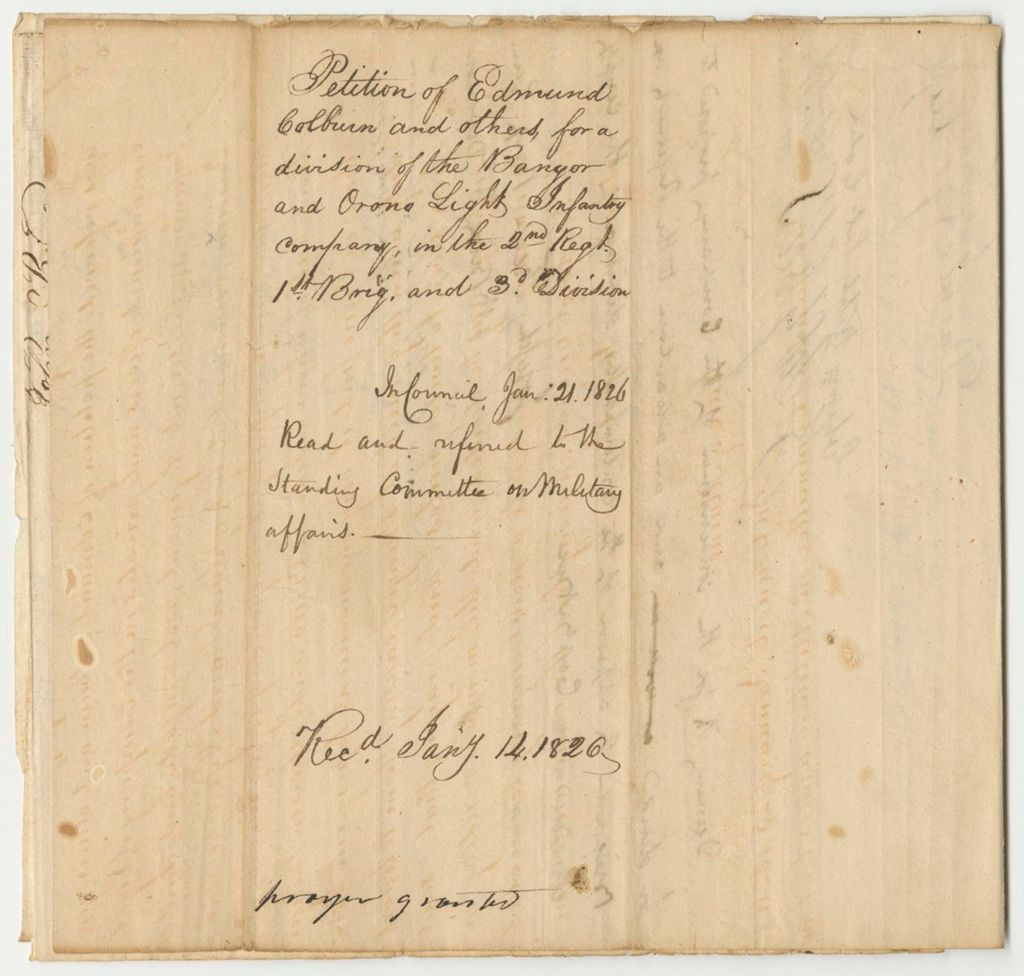 Petition of Edmund
Colburn and others, for a
division of the Bangor
and Orono Light Infantry
company, in the 2nd Regt.
1st Brig. and 3d. Division
In Council, Jan: 21. 1826
Read and referred to the
Standing Committee on Military
affairs.
Recd. Jany. 14. 1826
prayer granted